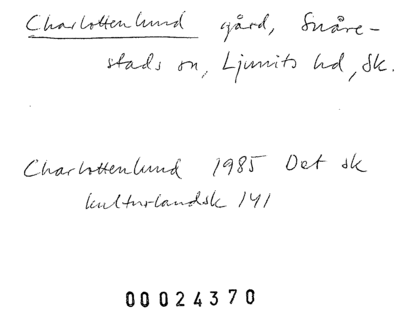 Charlottenlund gård, Snåre-
stads sn, Ljunits hd, Sk.
Charlottenlund 1985 Det sk
kulturlandsk 141
00024370